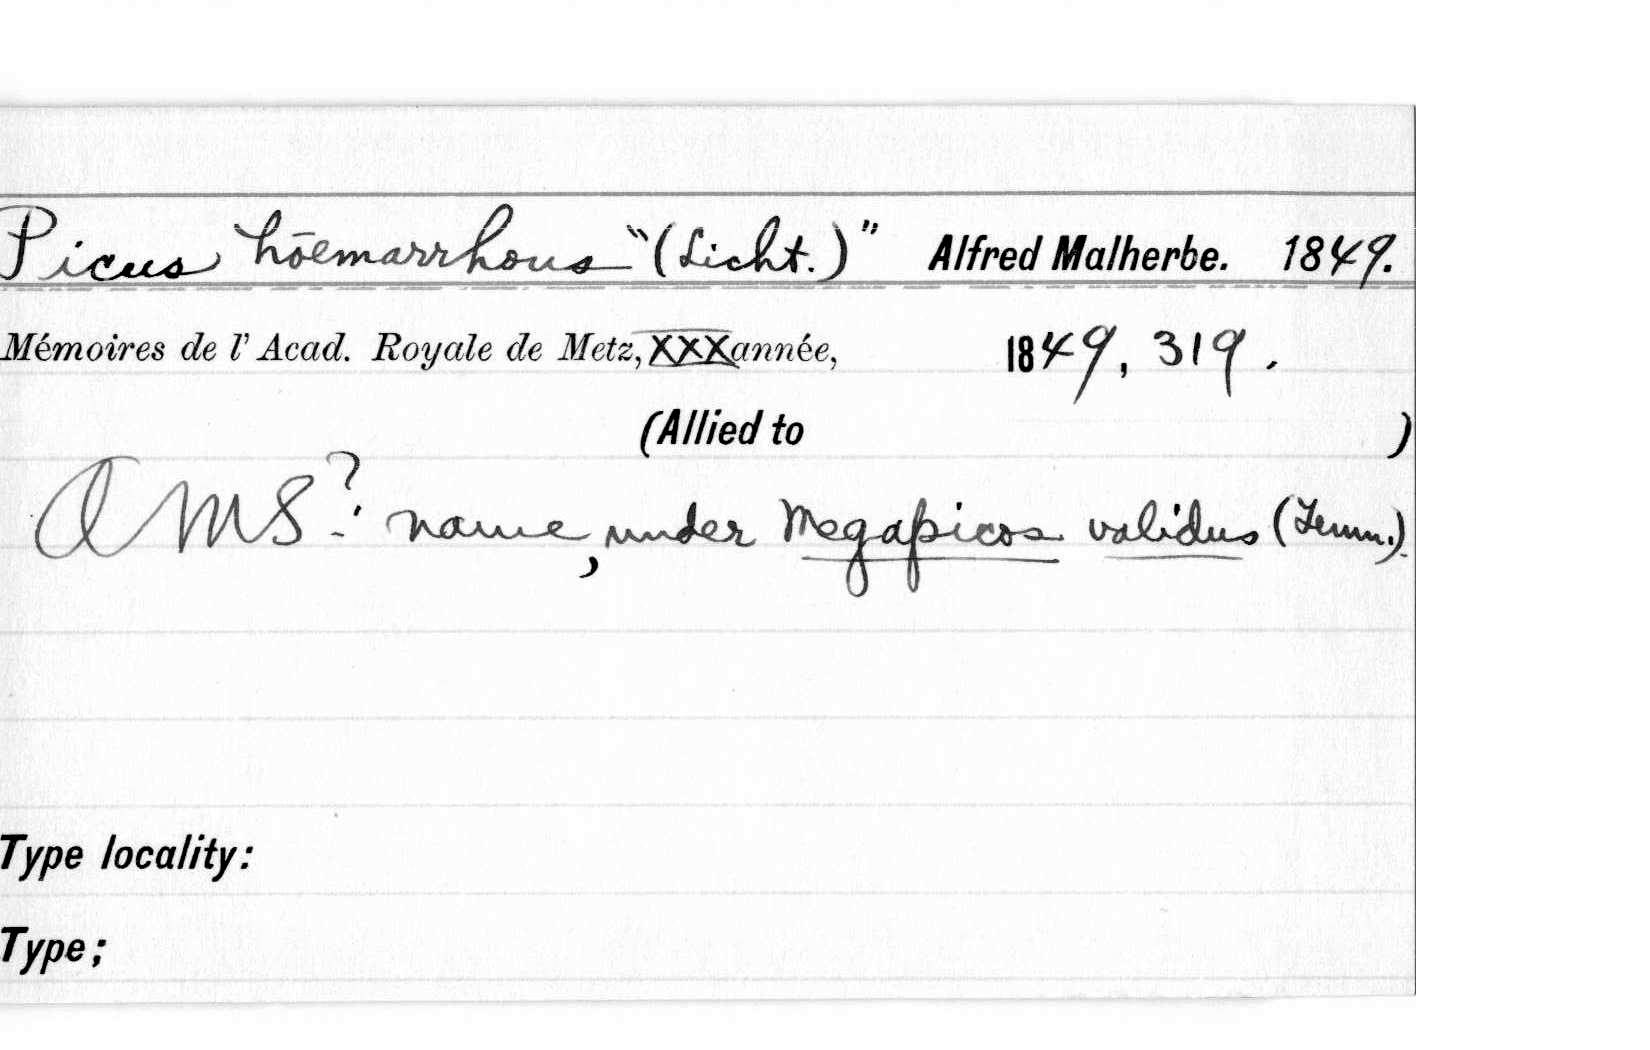 Picus hoemarrhous "(Licht.)" Alfred Malherbe. 1849.
Mémoires de l' Acad. Royale de Metz, XXX année, 1849, 319.
(Allied to )
A MS? name, under Megapicos validus (Temm.).
Type locality:
Type;